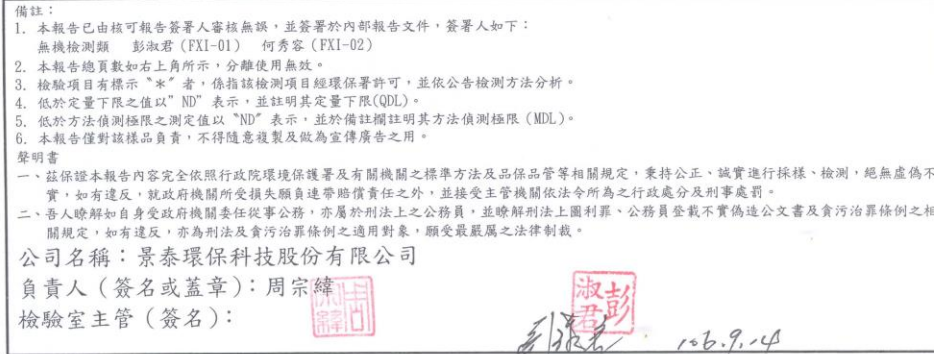 備註：
1. 本報告已由核可報告簽署人審核無誤，並簽署於內部報告文件，簽署人如下：
無機檢測類 彭淑君(FXI-01) 何秀容(FXI-02)
2. 本報告總頁數如右上角所示，分離使用無效。
3. 檢驗項目有標示〝*〞者，係指該檢測項目經環保署許可，並依公告檢測方法分析。
4. 低於定量下限之值以"ND"表示，並註明其定量下限(QDL)。
5. 低於方法偵測極限之測定值以〝ND〞表示，並於備註欄註明其方法偵測極限(MDL)。
6. 本報告僅對該樣品負責，不得隨意複製及做為宣傳廣告之用。
聲明書
一、茲保證本報告內容完全依照行政院環境保護署及有關機關之標準方法及品保品管等相關規定，秉持公正、誠實進行採樣、檢測，絕無虛偽不
實，如有違反，就政府機關所受損失願負連帶賠償責任之外，並接受主管機關依法令所為之行政處分及刑事處罰。
二、吾人瞭解如自身受政府機關委任從事公務，亦屬於刑法上之公務員，並瞭解刑法上圖利罪、公務員登載不實偽造公文書及貪污治罪條例之相
關規定，如有違反，亦為刑法及貪污治罪條例之適用對象，願受最嚴厲之法律制裁。
公司名稱：景泰環保科技股份有限公司
負責人（簽名或蓋章）：周宗緯
彭淑君
檢驗室主管（簽名）：
106.9.14